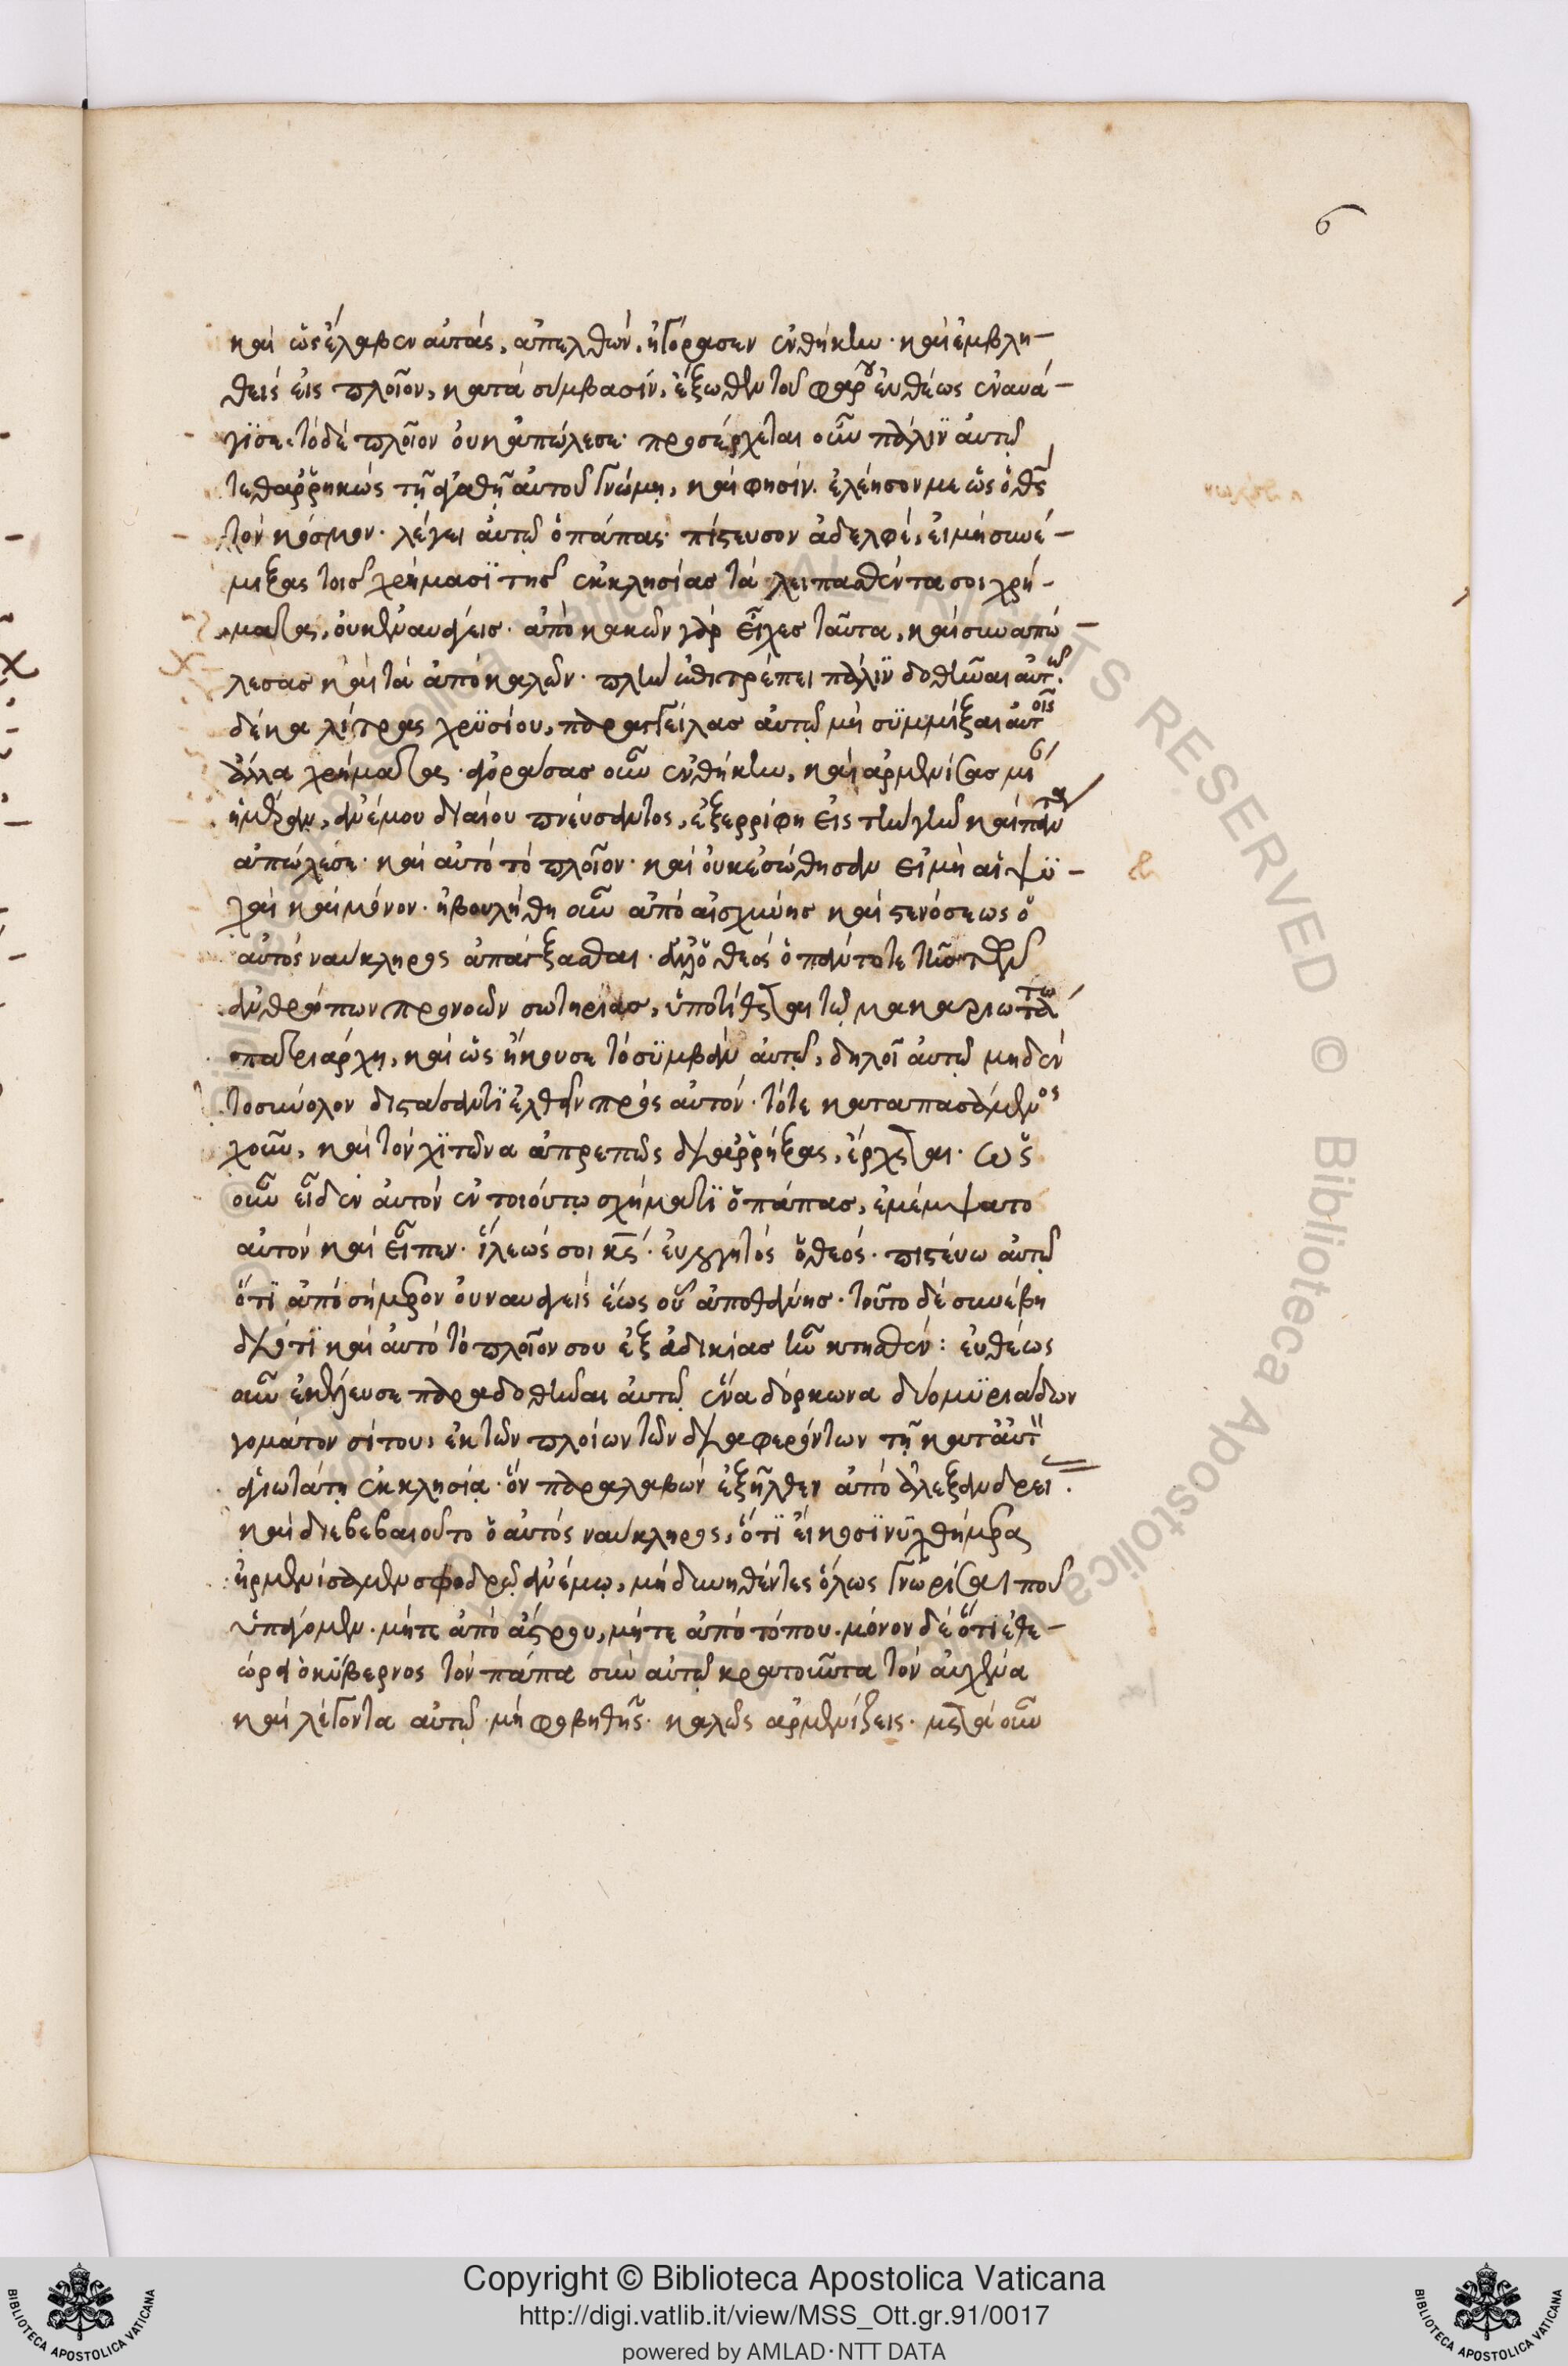 6
καὶ ὡς ἔλαβεν αὐτάς, ἀπελθών, ἠγόρασεν ἐνθήκην· καὶ ἐμβλη-
θεὶς εἰς πλοῖον, κατὰ σύμβασιν, ἔξωθεν τοῦ φάρου εὐθέως ἐναυά-
γϊσε. τὸ δὲ πλοῖον οὐκ ἀπώλεσε· προσέρχεται οὖν πάλϊν αὐτῷ
τεθαῤῥηκὼς τῇ ἀγαθῇ αὐτοῦ γνώμῃ, καὶ φησίν. ἐλέησόν με ὡς ὁ θς
τὸν κόσμον· λέγει αὐτῷ ὁ πάπας· πίστευσον ἀδελφέ, εἰ μὴ συνέ-
μιξας τοῖς χρήμασϊ τῆς ἐκκλησίας τὰ λειπασθέντα σοι χρή-
ματα, οὐκ ἐναυάγεις· ἀπὸ κακῶν γὰρ εἶχες ταῦτα, καὶ συναπώ-
λεσας καὶ τὰ ἀπὸ καλῶν· πλὴν ἐπιτρέπει πάλϊν δοθῆναι αὐτῷ
δέκα λίτρας χρϋσίου, παραγγείλας αὐτῷ μὴ σϋμμίξαι αὐτοῖς
ἄλλα χρήματα· ἀγοράσας οὖν ἐνθήκην, καὶ ἀρμενίσας μίαν
ἡμέραν, ἀνέμου βιαίου πνεύσαντος, ἐξερρίφη εἰς τὴν γῆν καὶ πάντα
ἀπώλεσε· καὶ αὐτὸ τὸ πλοῖον· καὶ οὐκ ἐσώθησαν εἰ μὴ αἱ ψϋ-
χαὶ καὶ μόνον· ἠβουλήθη οὖν ἀπὸ αἰσχύνης καὶ στενόσεως ὁ
αὐτὸς ναύκληρος ἀπάγξασθαι· ἀλλ' ὁ θεὸς ὁ πάντοτε τῆς τῶν
ἀνθρώπων προνοῶν σωτηρίας, ὑποτίθεται τῷ μακαριωτάτῳ
πατριάρχῃ, καὶ ὡς ἤκουσε τὸ σϋμβὰν αὐτῷ, δηλοῖ αὐτῷ μηδὲν
τὸ σύνολον διστάσαντϊ ἐλθεῖν πρὸς αὐτόν· τότε καταπασάμενος
χοῦν, καὶ τὸν χϊτῶνα ἀπρεπῶς διαῤῥήξας, ἔρχεται· ὡς
οὖν εἶδεν αὐτὸν ἐν τοιούτῳ σχήματϊ ὁ πάπας, ἐμέμψατο
αὐτὸν καὶ εἶπεν· ἵλεώς σοι κς· εὐλογητὸς ὁ θεός· πιστεύω αὐτῷ
ὅτϊ ἀπὸ σήμερον οὐ ναυαγεῖς ἕως οὗ ἀποθάνῃς· τοῦτο δὲ συνέβη
διότϊ καὶ αὐτὸ τὸ πλοῖον σου ἐξ ἀδικίας ἦν κτηθέν: εὐθέως
οὖν ἐκέλευσε παραδοθῆναι αὐτῷ ἕνα δόρκωνα δύο μϋριάδων
γομάτον σίτου, ἐκ τῶν πλοίων τῶν διαφερόντων τῇ κατ' αὐτὸν
ἁγιωτάτῃ ἐκκλησίᾳ· ὃν παραλαβὼν ἐξῆλθεν ἀπὸ ἀλεξανδρεί.
καὶ διεβεβαιοῦτο ὁ αὐτὸς ναύκληρος, ὅτϊ εἴκοσϊ νυχθήμερα
ἠρμενίσαμεν σφοδρῷ ἀνέμῳ, μὴ δυνηθέντες ὅλως γνωρίσαι ποῦ
ὑπάγομεν· μήτε ἀπὸ ἄστρου, μήτε ἀπὸ τόπου· μόνον δὲ ὅτι ἐθε-
ώρει ὁ κύβερνος τὸν πάπα σὺν αὐτῷ κρατοῦντα τὸν αὐχένα
καὶ λέγοντα αὐτῷ· μὴ φοβηθῇς· καλῶς ἀρμενίζεις· μετὰ οὖν
Copyright © Biblioteca Apostolica Vaticana
http://digi.vatlib.it/view/MSS_Ott.gr.91/0017
powered by AMLAD·NTT DATA